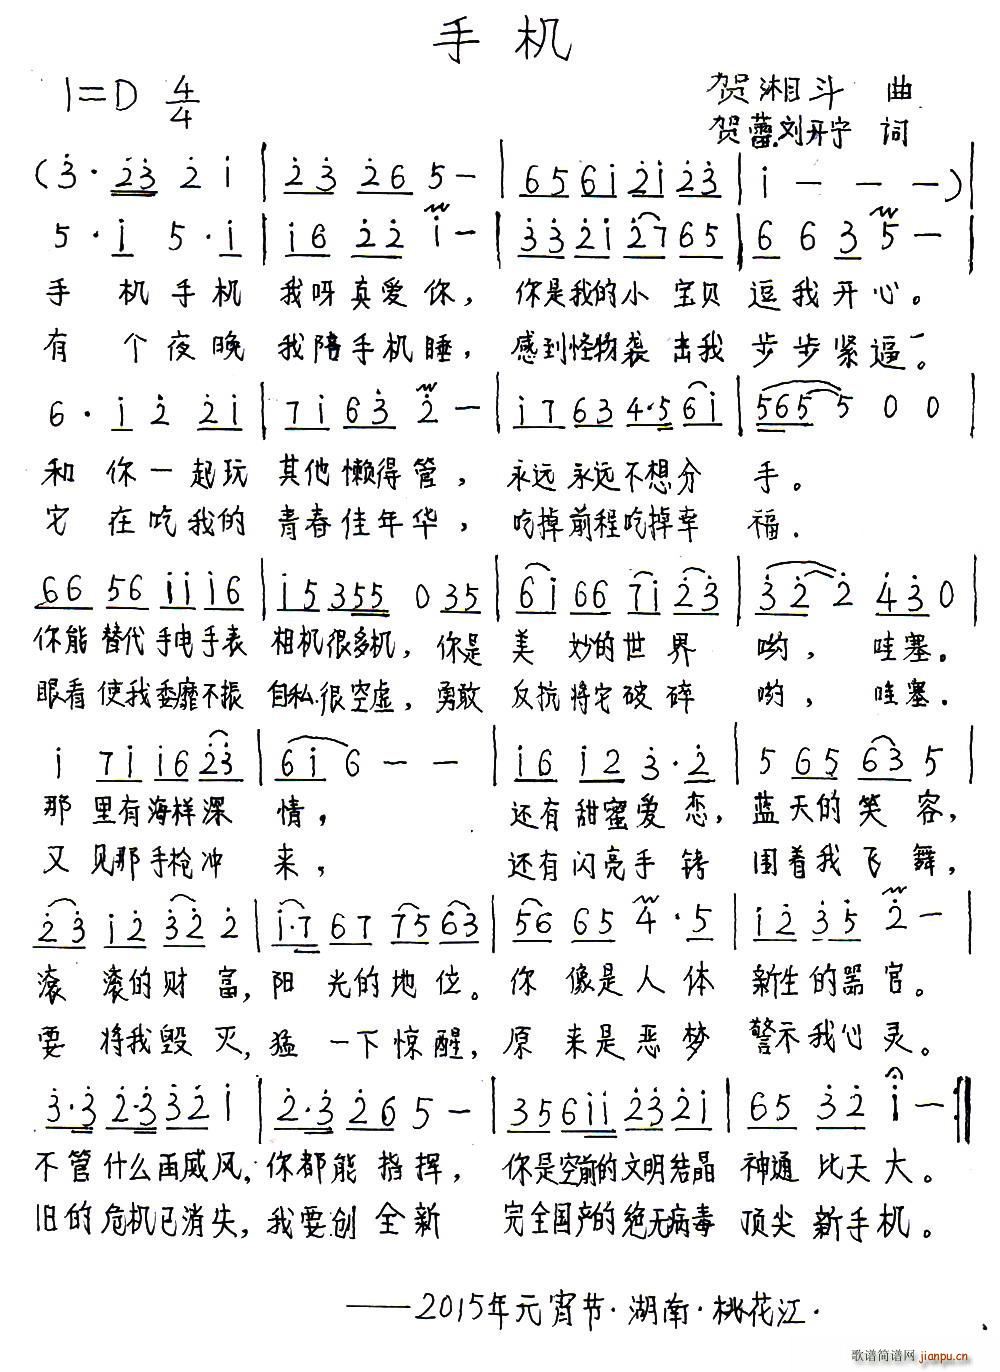 手机
1=D 4/4
贺湘斗 曲
贺蕾.刘开宁 词
(3· 23 2 1 | 23 26 5 - | 65 61 21 23 | 1 - - - )|
5· 1 5· 1 | 16 22 1 - | 33 21 27 65 | 6 6 3 5 - |
手 机手机 我呀真爱你，你是我的小宝贝 逗我开心。
有 个夜晚 我陪手机睡，感到怪物袭击我 步步紧逼。
6· 1 2 21 | 71 63 2 - | 17 63 4·5 61 | 565 5 0 0 |
和 你一起玩 其他懒得管，永远永远不想分 手。
它 在吃我的 青春佳年华，吃掉前程吃掉幸 福.
66 56 11 16 | 15 355 0 35 | 61 66 71 23 | 3 2 2 43 0 |
你能替代手电手表 相机很多机，你是 美 妙的世界 哟，哇塞.
眼看使我委靡不振 自私很空虚，勇敢 反抗将它破碎 哟，哇塞.
1 71 16 23 | 61 6 - - | 16 12 3·2 | 5 65 63 5 |
那 里有海样深 情， 还有甜蜜爱恋，蓝天的笑容，
又 见那手枪冲 来， 还有闪亮手铐 围着我飞舞，
23 12 32 2 | 1·7 67 75 63 | 56 65 4·5 | 12 35 2 - |
滚 滚的财富，阳 光的地位。你 像是人体 新生的器官。
要 将我毁灭，猛 一下惊醒，原 来是恶梦 警示我心灵。
3·3 2·3 32 1 | 2·3 26 5 - | 35 611 23 21 | 65 32 1 - :||
不管什么再威风，你都能指挥， 你是空前的文明结晶 神通比天大。
旧的危机已消失，我要创全新 完全国产的绝无病毒 顶尖新手机。
——2015年元宵节·湖南·桃花江·
歌谱简谱网
jianpu.cn